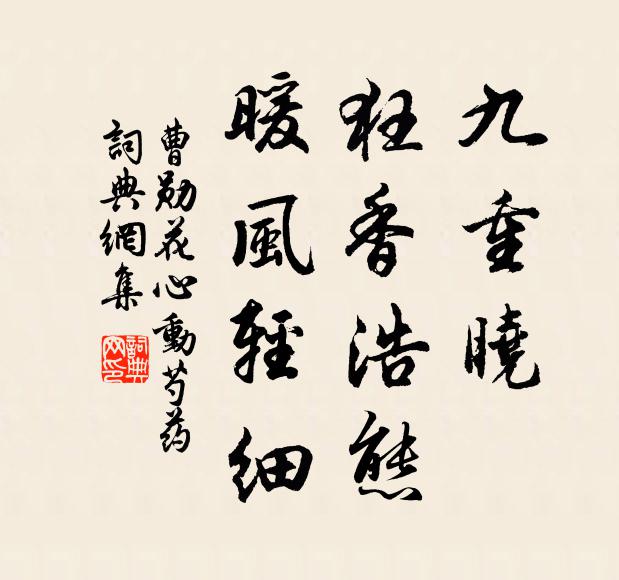 九重曉
狂香浩態
暖風輕細
曹勛花心動芍药
詞典網集
詞典网印